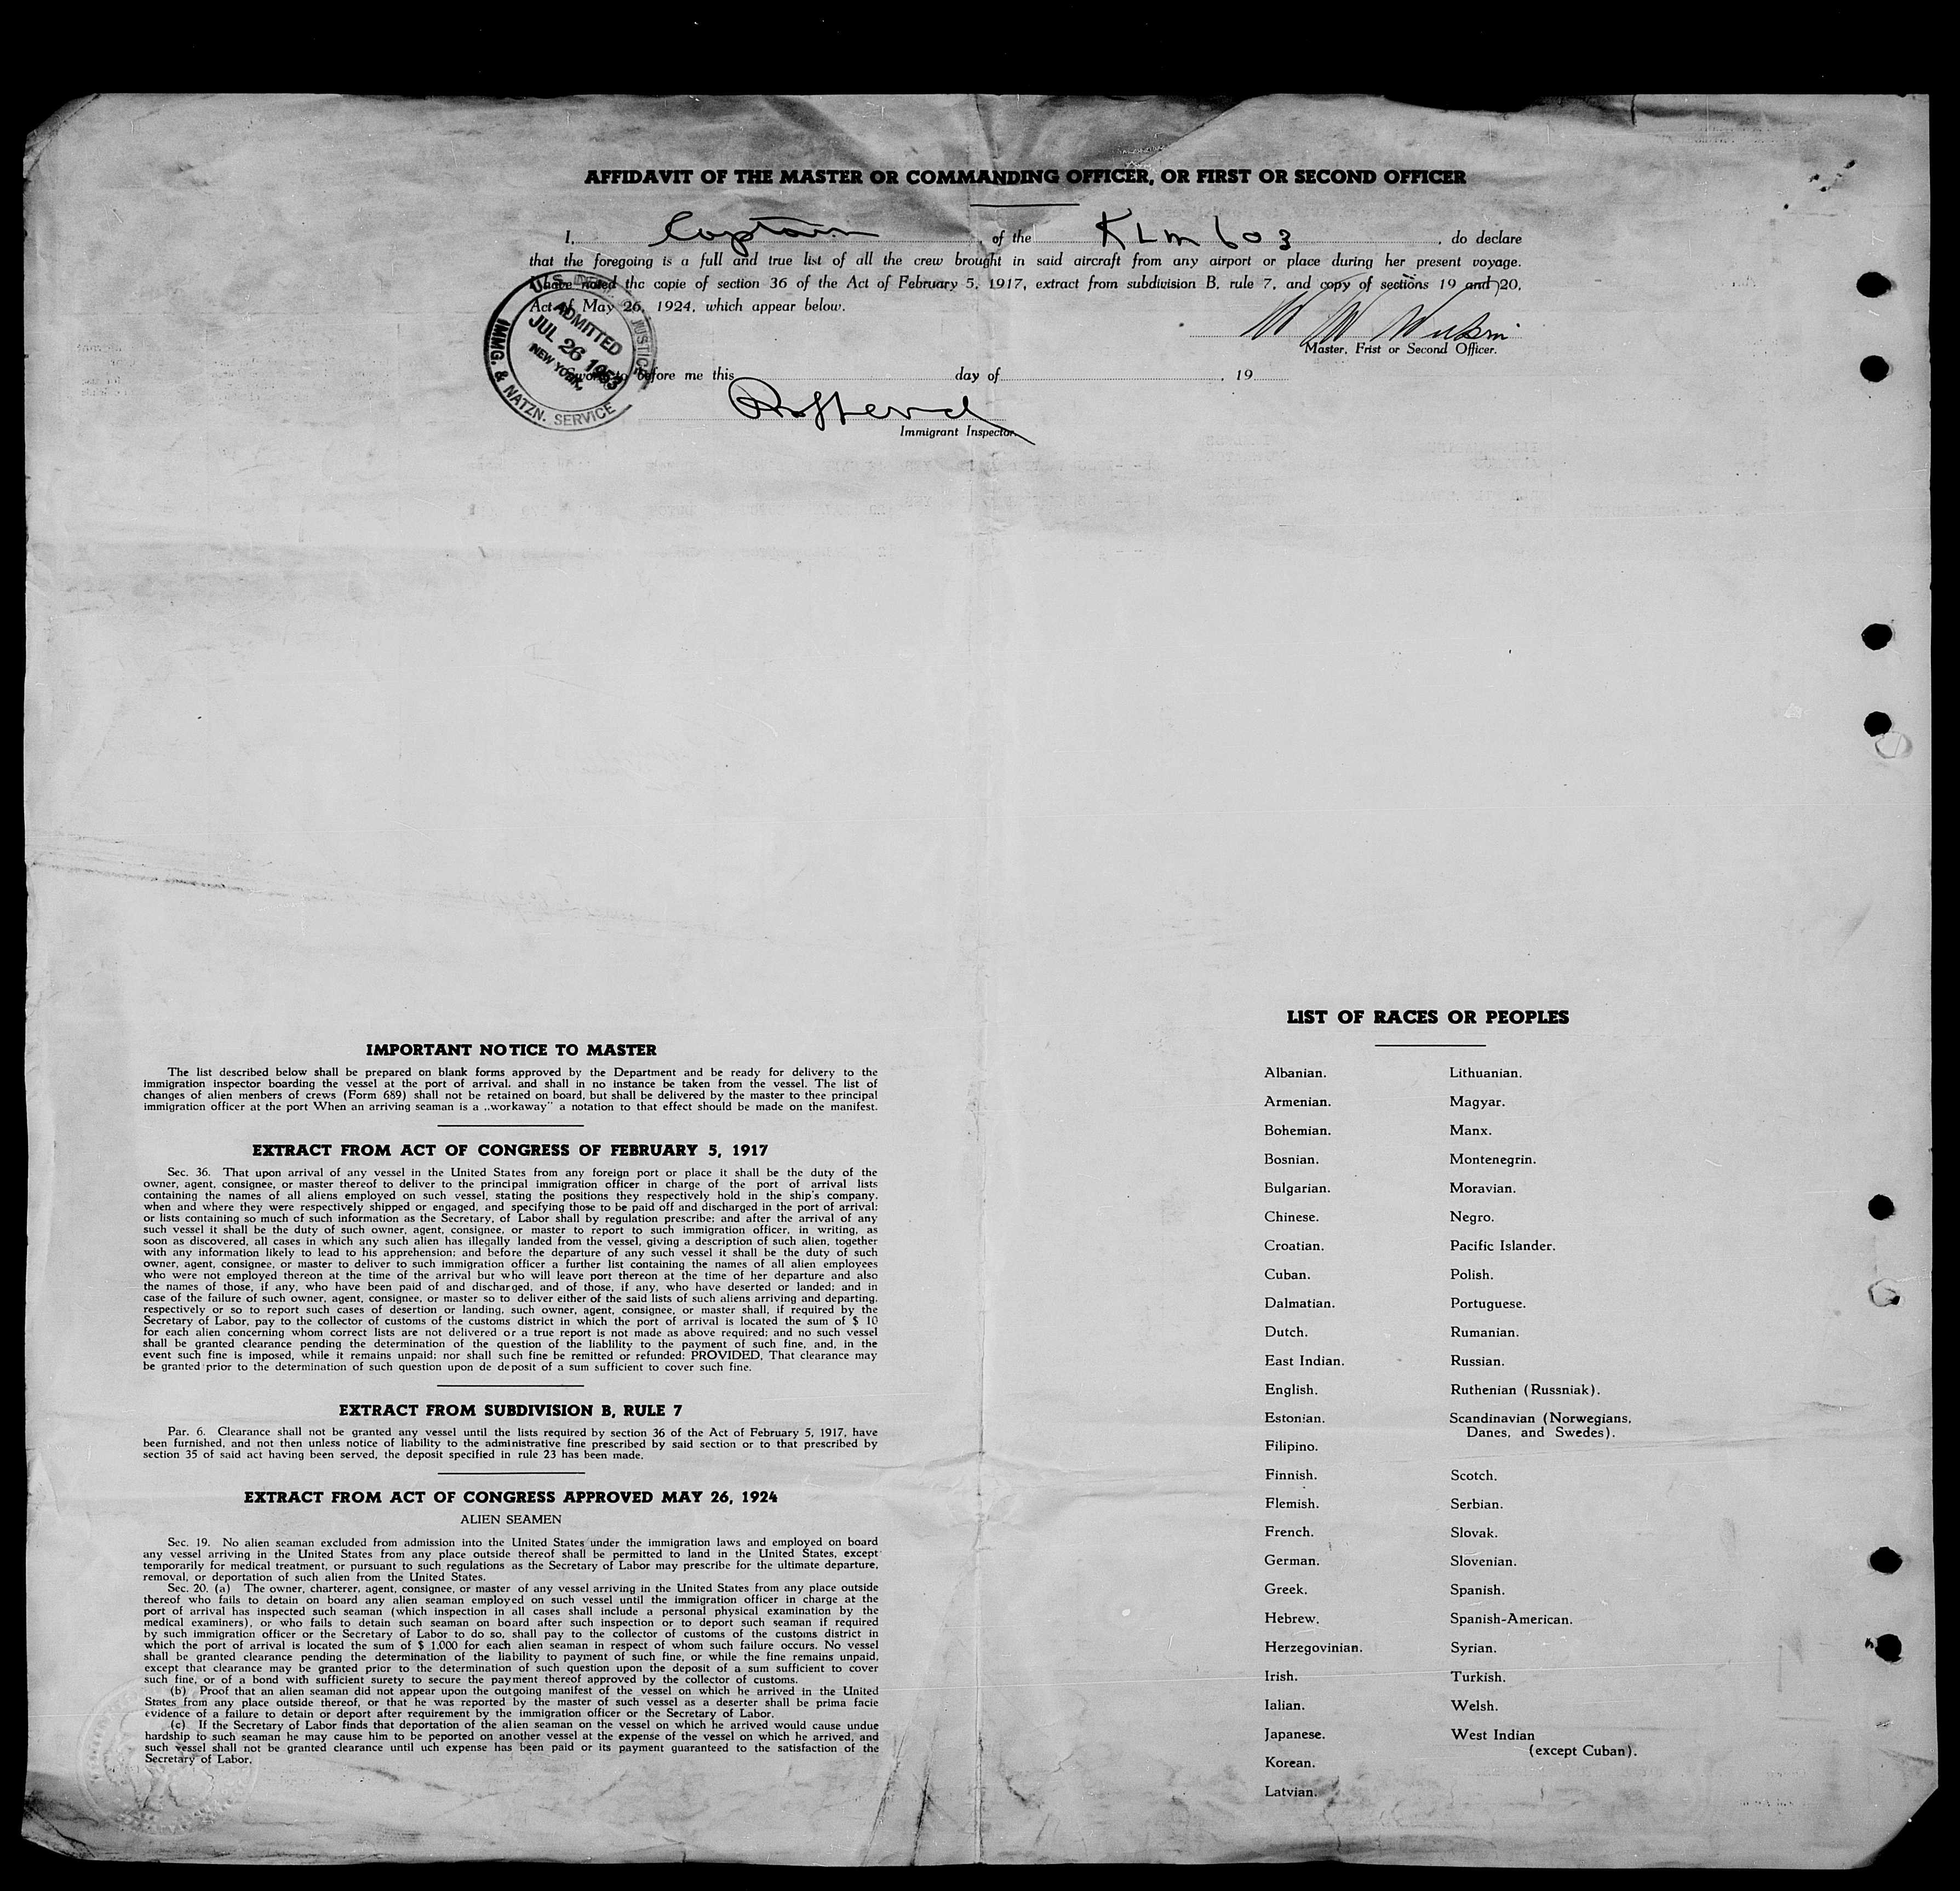 AFFIDAVIT OF THE MASTER OR COMMANDING OFFICER, OR FIRST OR SECOND OFFICER
I, Captain , of the KLM 603 , do declare
that the foregoing is a full and true list of all the crew brought in said aircraft from any airport or place during her present voyage.
I have noted the copie of section 36 of the Act of February 5, 1917, extract from subdivision B, rule 7, and copy of sections 19 and 20,
Act of May 26, 1924, which appear below.
Master, Frist or Second Officer.
U.S. DEPT. OF JUSTICE
ADMITTED
JUL 26 1953
NEW YORK,
IMMG. & NATZN. SERVICE
Sworn to before me this day of , 19
Immigrant Inspector.
IMPORTANT NOTICE TO MASTER
The list described below shall be prepared on blank forms approved by the Department and be ready for delivery to the
immigration inspector boarding the vessel at the port of arrival, and shall in no instance be taken from the vessel. The list of
changes of alien menbers of crews (Form 689) shall not be retained on board, but shall be delivered by the master to thee principal
immigration officer at the port When an arriving seaman is a ,,workaway" a notation to that effect should be made on the manifest.
EXTRACT FROM ACT OF CONGRESS OF FEBRUARY 5, 1917
Sec. 36. That upon arrival of any vessel in the United States from any foreign port or place it shall be the duty of the
owner, agent, consignee, or master thereof to deliver to the principal immigration officer in charge of the port of arrival lists
containing the names of all aliens employed on such vessel, stating the positions they respectively hold in the ship's company,
when and where they were respectively shipped or engaged, and specifying those to be paid off and discharged in the port of arrival;
or lists containing so much of such information as the Secretary, of Labor shall by regulation prescribe; and after the arrival of any
such vessel it shall be the duty of such owner, agent, consignee, or master to report to such immigration officer, in writing, as
soon as discovered, all cases in which any such alien has illegally landed from the vessel, giving a description of such alien, together
with any information likely to lead to his apprehension; and before the departure of any such vessel it shall be the duty of such
owner, agent, consignee, or master to deliver to such immigration officer a further list containing the names of all alien employees
who were not employed thereon at the time of the arrival but who will leave port thereon at the time of her departure and also
the names of those, if any, who have been paid of and discharged, and of those, if any, who have deserted or landed; and in
case of the failure of such owner, agent, consignee, or master so to deliver either of the said lists of such aliens arriving and departing,
respectively or so to report such cases of desertion or landing, such owner, agent, consignee, or master shall, if required by the
Secretary of Labor, pay to the collector of customs of the customs district in which the port of arrival is located the sum of $ 10
for each alien concerning whom correct lists are not delivered or a true report is not made as above required; and no such vessel
shall be granted clearance pending the determination of the question of the liablility to the payment of such fine, and, in the
event such fine is imposed, while it remains unpaid; nor shall such fine be remitted or refunded: PROVIDED, That clearance may
be granted prior to the determination of such question upon de deposit of a sum sufficient to cover such fine.
EXTRACT FROM SUBDIVISION B, RULE 7
Par. 6. Clearance shall not be granted any vessel until the lists required by section 36 of the Act of February 5, 1917, have
been furnished, and not then unless notice of liability to the administrative fine prescribed by said section or to that prescribed by
section 35 of said act having been served, the deposit specified in rule 23 has been made.
EXTRACT FROM ACT OF CONGRESS APPROVED MAY 26, 1924
ALIEN SEAMEN
Sec. 19. No alien seaman excluded from admission into the United States under the immigration laws and employed on board
any vessel arriving in the United States from any place outside thereof shall be permitted to land in the United States, except
temporarily for medical treatment, or pursuant to such regulations as the Secretary of Labor may prescribe for the ultimate departure,
removal, or deportation of such alien from the United States.
Sec. 20. (a) The owner, charterer, agent, consignee, or master of any vessel arriving in the United States from any place outside
thereof who fails to detain on board any alien seaman employed on such vessel until the immigration officer in charge at the
port of arrival has inspected such seaman (which inspection in all cases shall include a personal physical examination by the
medical examiners), or who fails to detain such seaman on board after such inspection or to deport such seaman if required
by such immigration officer or the Secretary of Labor to do so, shall pay to the collector of customs of the customs district in
which the port of arrival is located the sum of $ 1.000 for each alien seaman in respect of whom such failure occurs. No vessel
shall be granted clearance pending the determination of the liability to payment of such fine, or while the fine remains unpaid,
except that clearance may be granted prior to the determination of such question upon the deposit of a sum sufficient to cover
such fine, or of a bond with sufficient surety to secure the payment thereof approved by the collector of customs.
(b) Proof that an alien seaman did not appear upon the outgoing manifest of the vessel on which he arrived in the United
States from any place outside thereof, or that he was reported by the master of such vessel as a deserter shall be prima facie
evidence of a failure to detain or deport after requirement by the immigration officer or the Secretary of Labor.
(c) If the Secretary of Labor finds that deportation of the alien seaman on the vessel on which he arrived would cause undue
hardship to such seaman he may cause him to be peported on another vessel at the expense of the vessel on which he arrived, and
such vessel shall not be granted clearance until uch expense has been paid or its payment guaranteed to the satisfaction of the
Secretary of Labor.
LIST OF RACES OR PEOPLES
Albanian.
Armenian.
Bohemian.
Bosnian.
Bulgarian.
Chinese.
Croatian.
Cuban.
Dalmatian.
Dutch.
East Indian.
English.
Estonian.
Filipino.
Finnish.
Flemish.
French.
German.
Greek.
Hebrew.
Herzegovinian.
Irish.
Ialian.
Japanese.
Korean.
Latvian.
Lithuanian.
Magyar.
Manx.
Montenegrin.
Moravian.
Negro.
Pacific Islander.
Polish.
Portuguese.
Rumanian.
Russian.
Ruthenian (Russniak).
Scandinavian (Norwegians,
Danes, and Swedes).
Scotch.
Serbian.
Slovak.
Slovenian.
Spanish.
Spanish-American.
Syrian.
Turkish.
Welsh.
West Indian
(except Cuban).